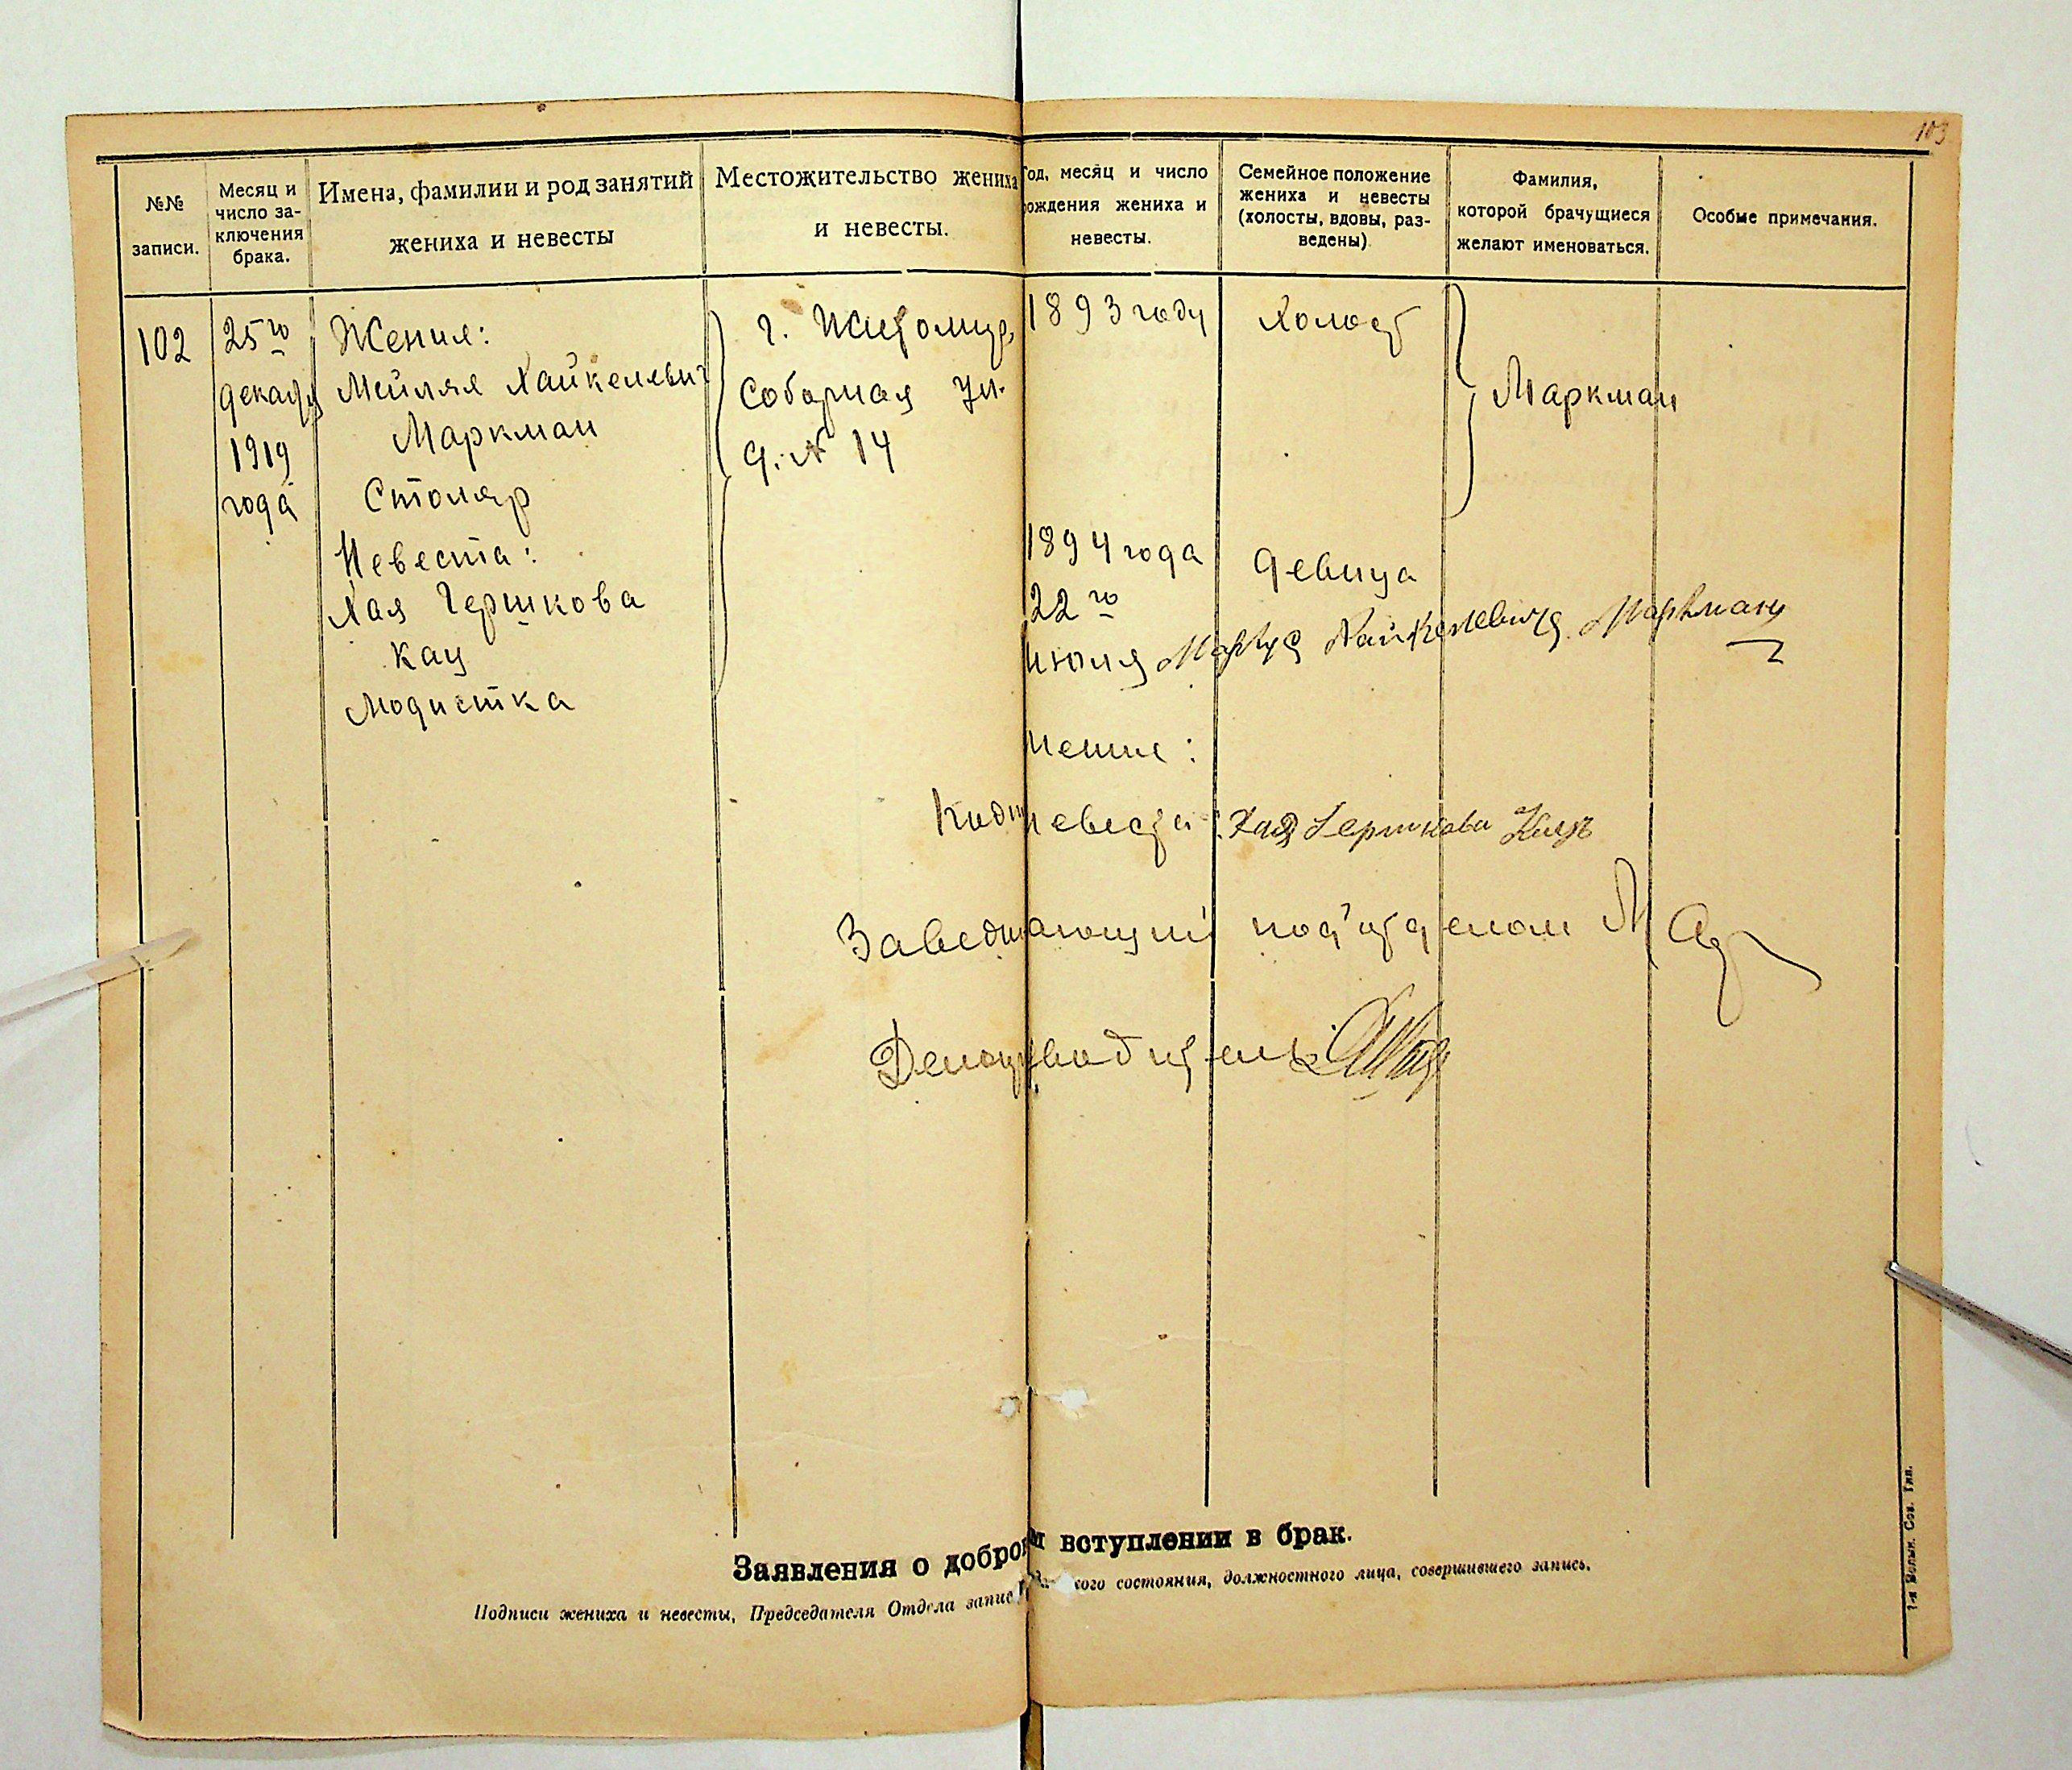 103
№№ записи.
Месяц и число заключения брака.
Имена, фамилии и род занятий жениха и невесты
Местожительство жениха и невесты.
Год, месяц и число рождения жениха и невесты.
Семейное положение жениха и невесты (холосты, вдовы, разведены)
Фамилия, которой брачущиеся желают именоваться.
Особые примечания.
102
25го
декабря
1919
года
Жених:
Мейлях Хайкелевич
Маркман
Столяр
Невеста:
Хая Гершкова
Кац
Модистка
г. Житомир,
Соборная ул.
д. № 14
1893 году
Холост
Маркман
1894 года
22го
июля
девица
Хайкелевича Маркмана
невеста: Хая Гершкова Кацъ
Заведывающий под'отделом
Делопроизводитель
Заявления о добров м вступлении в брак.
Подписи жениха и невесты, Председателя Отдела запис кого состояния, должностного лица, совершившего запись.
1-я Волын. Сов. Тип.